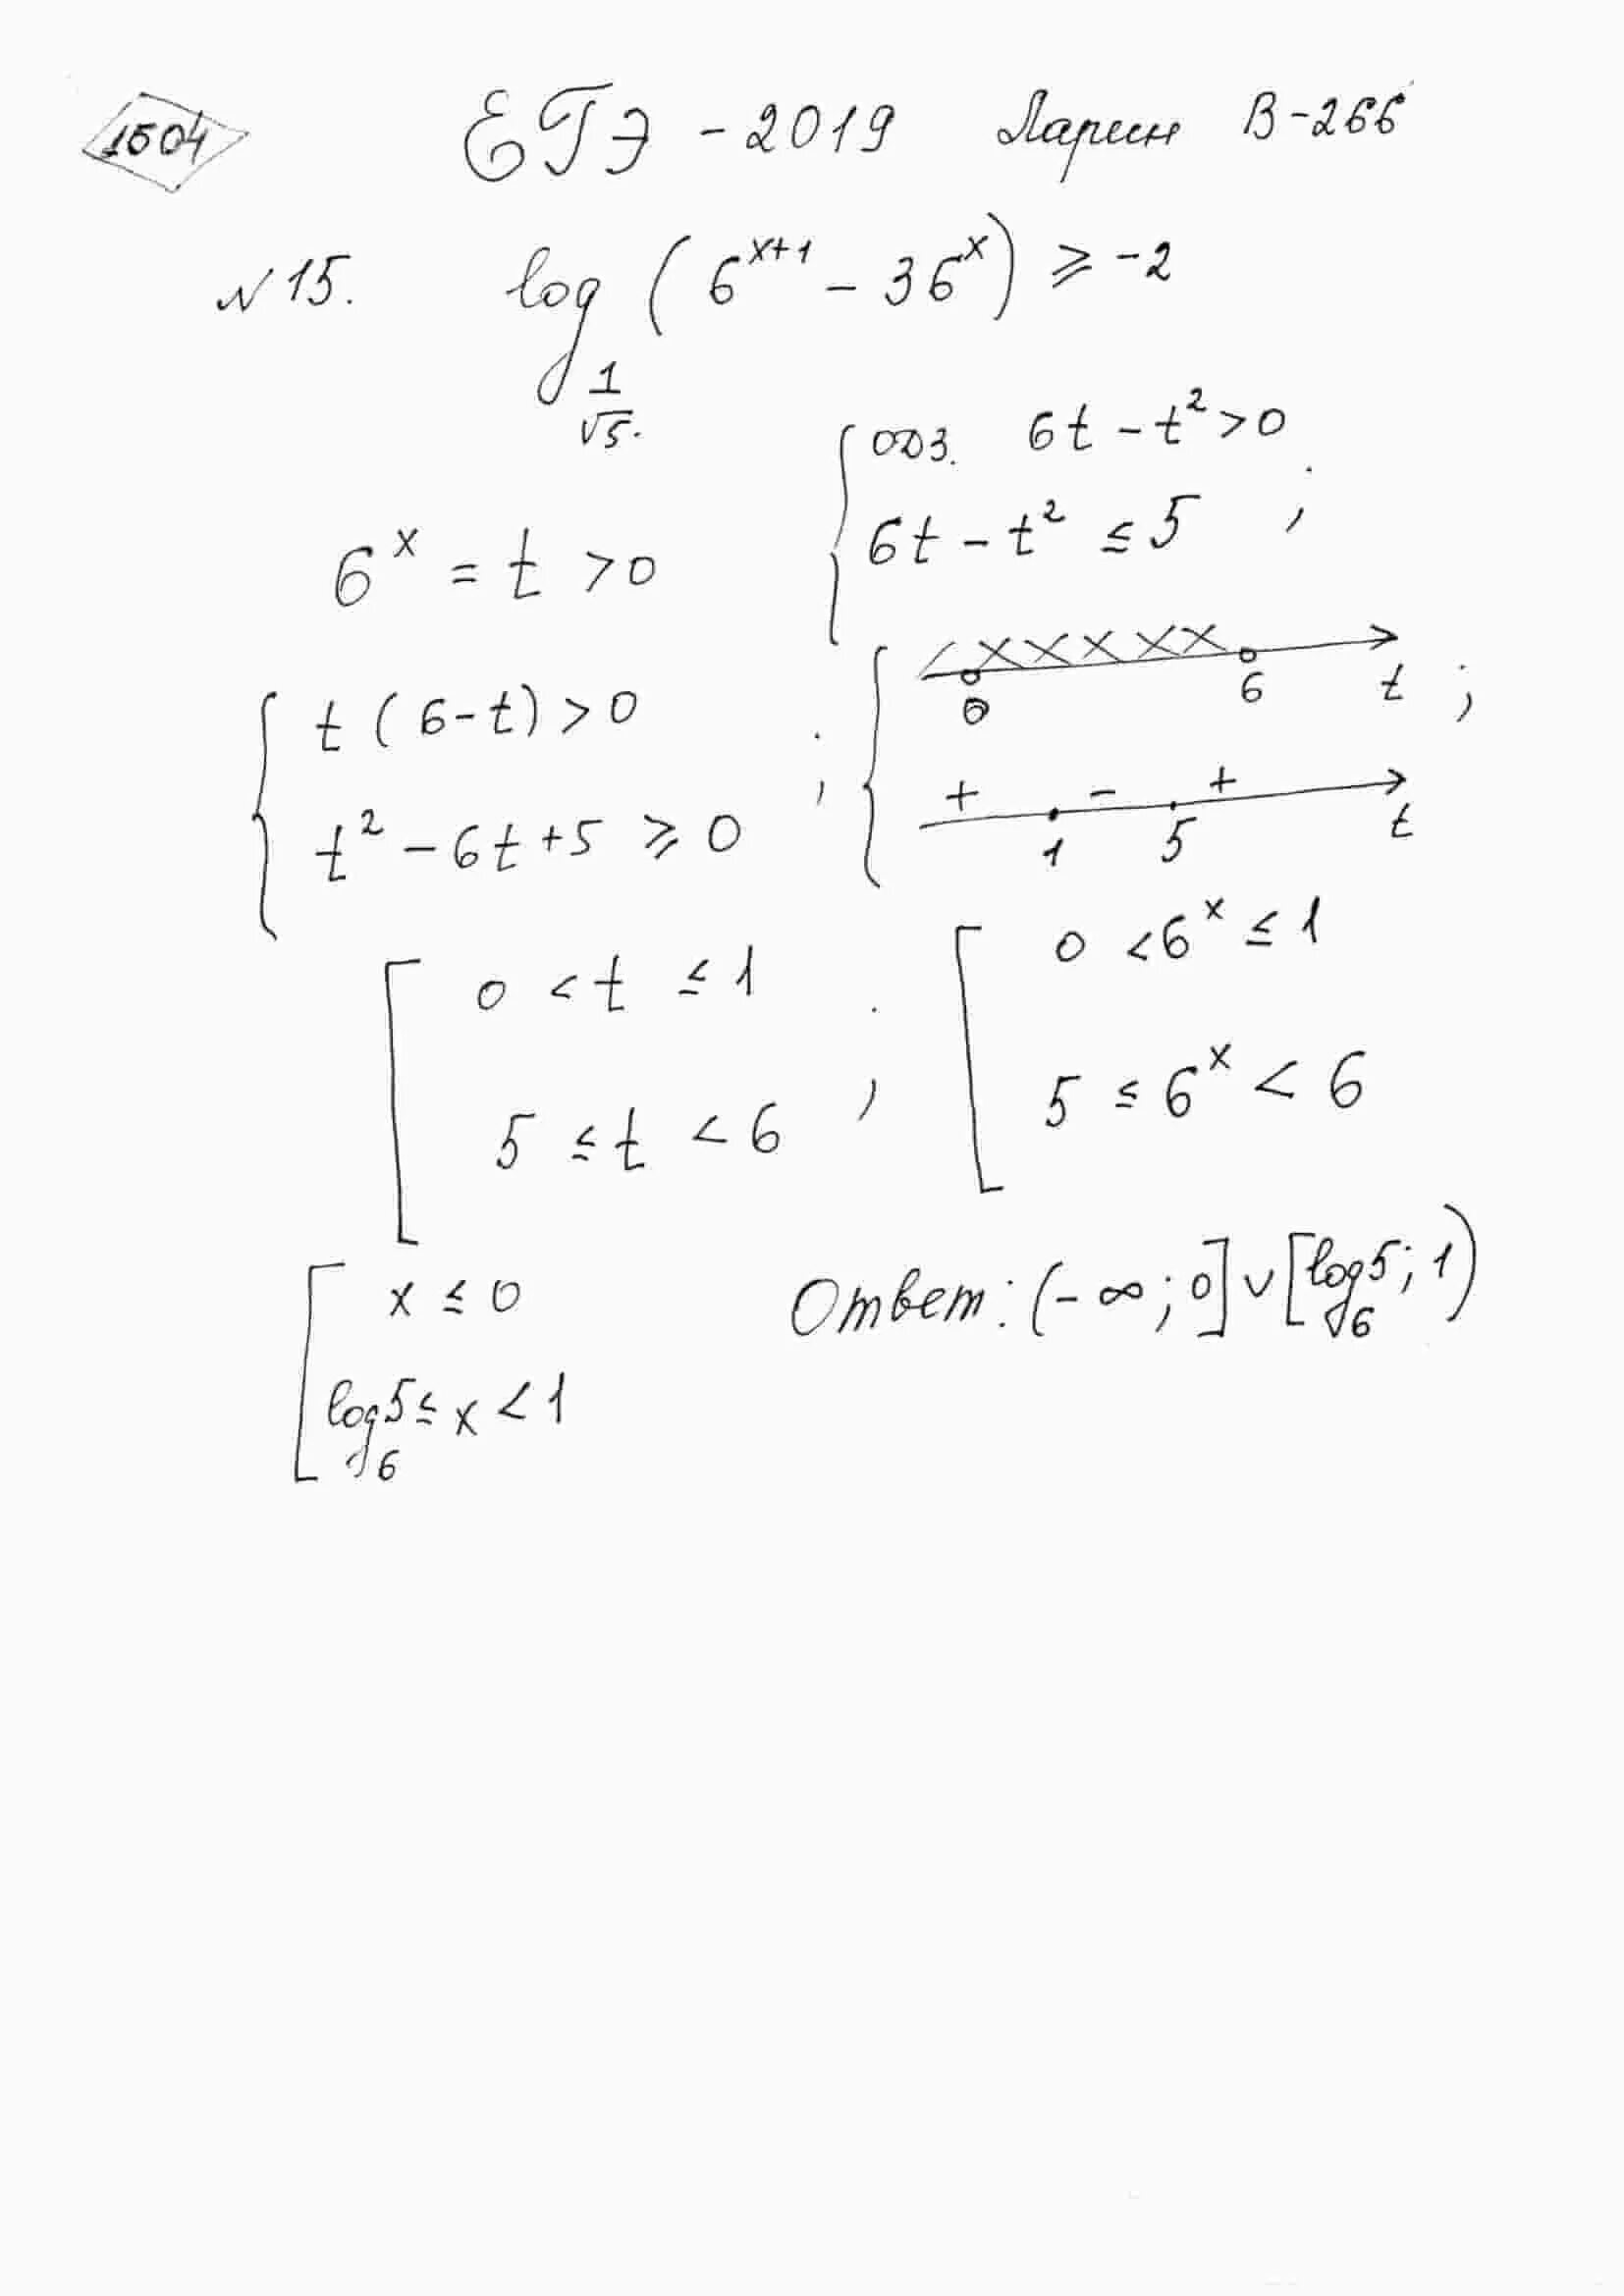 1504 ЕГЭ - 2019 Ларин В-266
№15. log_{1/√5.} (6^{x+1} - 36^x) ⩾ -2
{ ОДЗ. 6t - t² > 0
6t - t² ≤ 5 ;
6^x = t > 0
{ t (6-t) > 0
t² - 6t + 5 ⩾ 0 ;
{ 0 6 t ;
+ - +
1 5 t
[ 0 < t ≤ 1
5 ≤ t < 6 ;
[ 0 < 6^x ≤ 1
5 ≤ 6^x < 6
[ x ≤ 0
log_6 5 ≤ x < 1
Ответ: (-∞; 0] ∪ [log_6 5; 1)